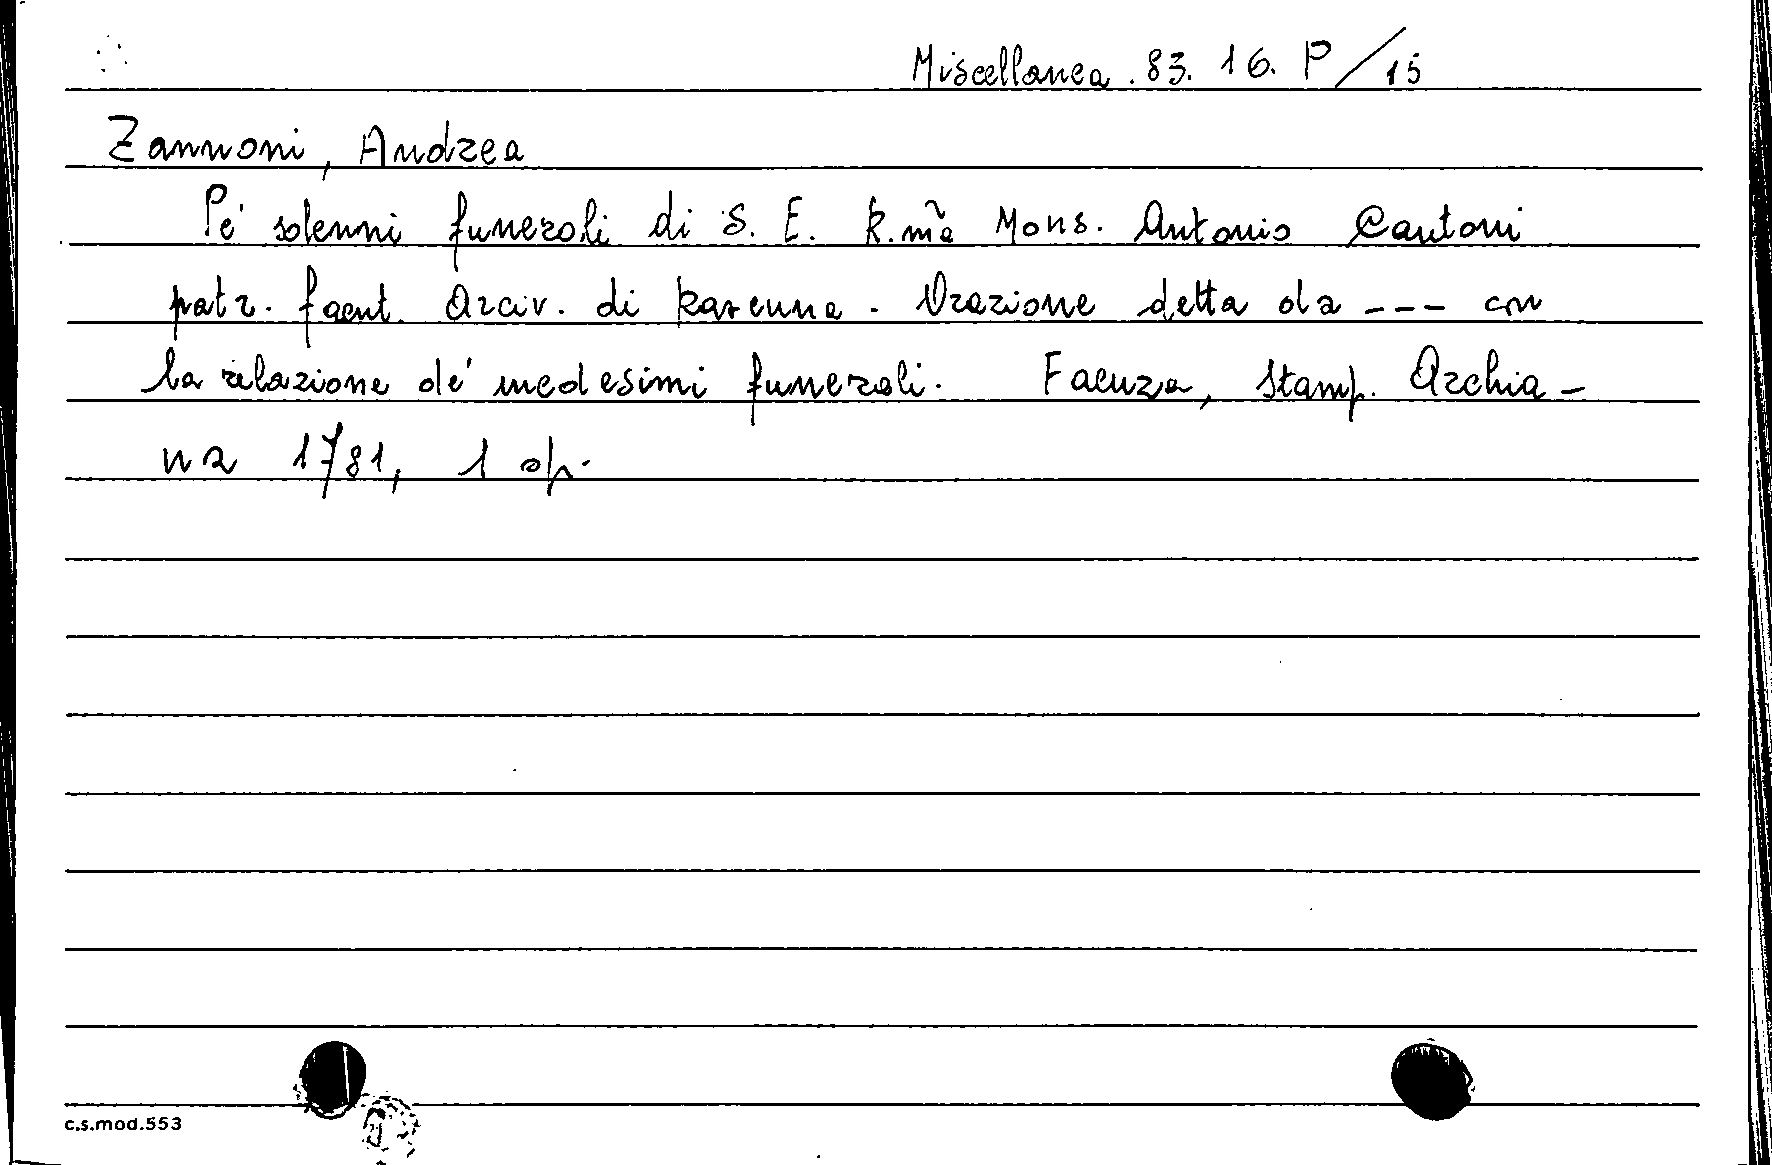 Miscellanea . 83. 16. P/15
Zannoni, Andrea
Pe' solenni funerali di S. E. R.mã Mons. Antonio Cantoni
patr. faent. Arciv. di Ravenna. Orazione detta da --- con
la relazione de' medesimi funerali. Faenza, Stamp. Archia-
na 1781, 1 op.
c.s.mod.553